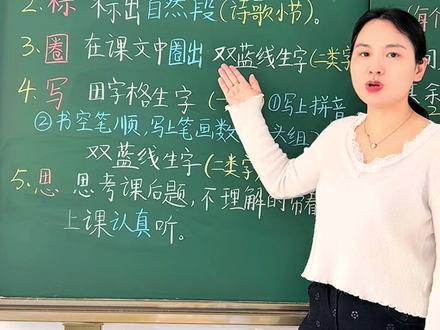 2. 标 标出自然段(诗歌小节)。
3. 圈 在课文中圈出 双蓝线生字(二类字
4. 写 田字格生字(一 ①写上拼音
②书空笔顺,写上笔画数 头组
双蓝线生字(二类字)
5. 思 思考课后题,不理解的
上课认真听。
(每
问
其余